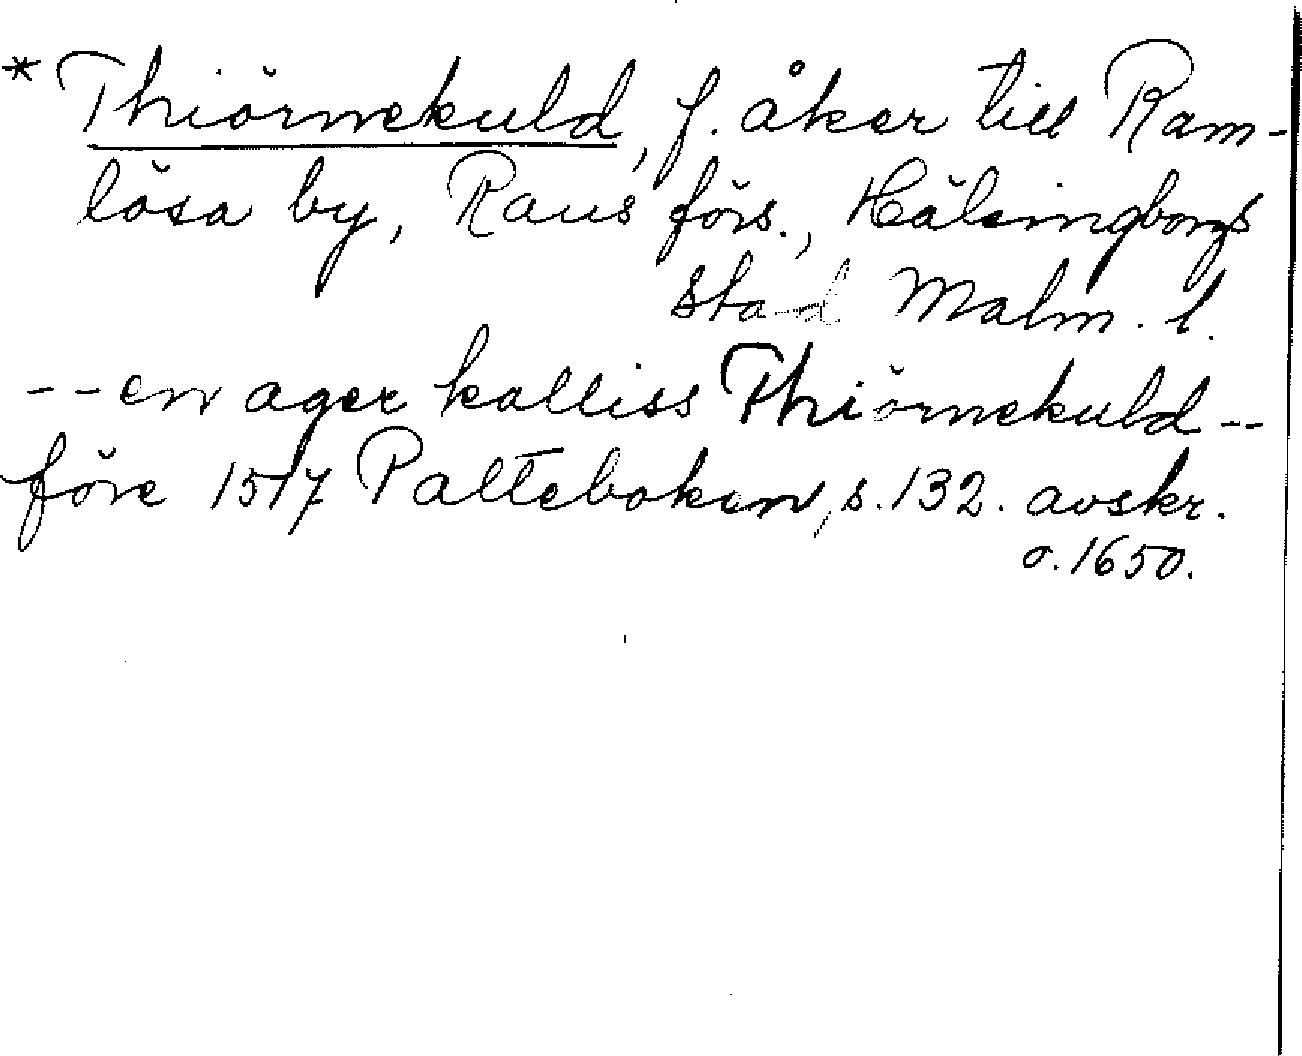 * Thiörnekuld, f. åker till Ram-
lösa by, Raus förs., Hälsingborgs
stad Malm. l.
-- en ager kalliss Thiörnekuld --
före 1517 Palteboken, s. 132. avskr.
o. 1650.